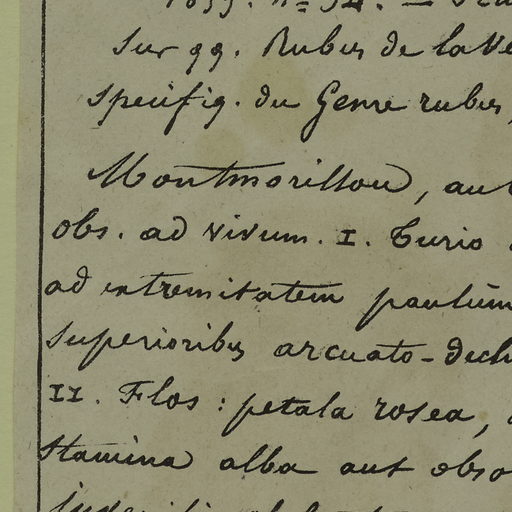 1859. n= 52. —
sur qq. Rubus de la Ve
spécifiq. du Genre rubus,
Montmorillon, aut
obs. ad vivum. I. Turio
ad extremitatem paulum
superioribus arcuato-decli
II. Flos: petala rosea,
stamina alba aut obso